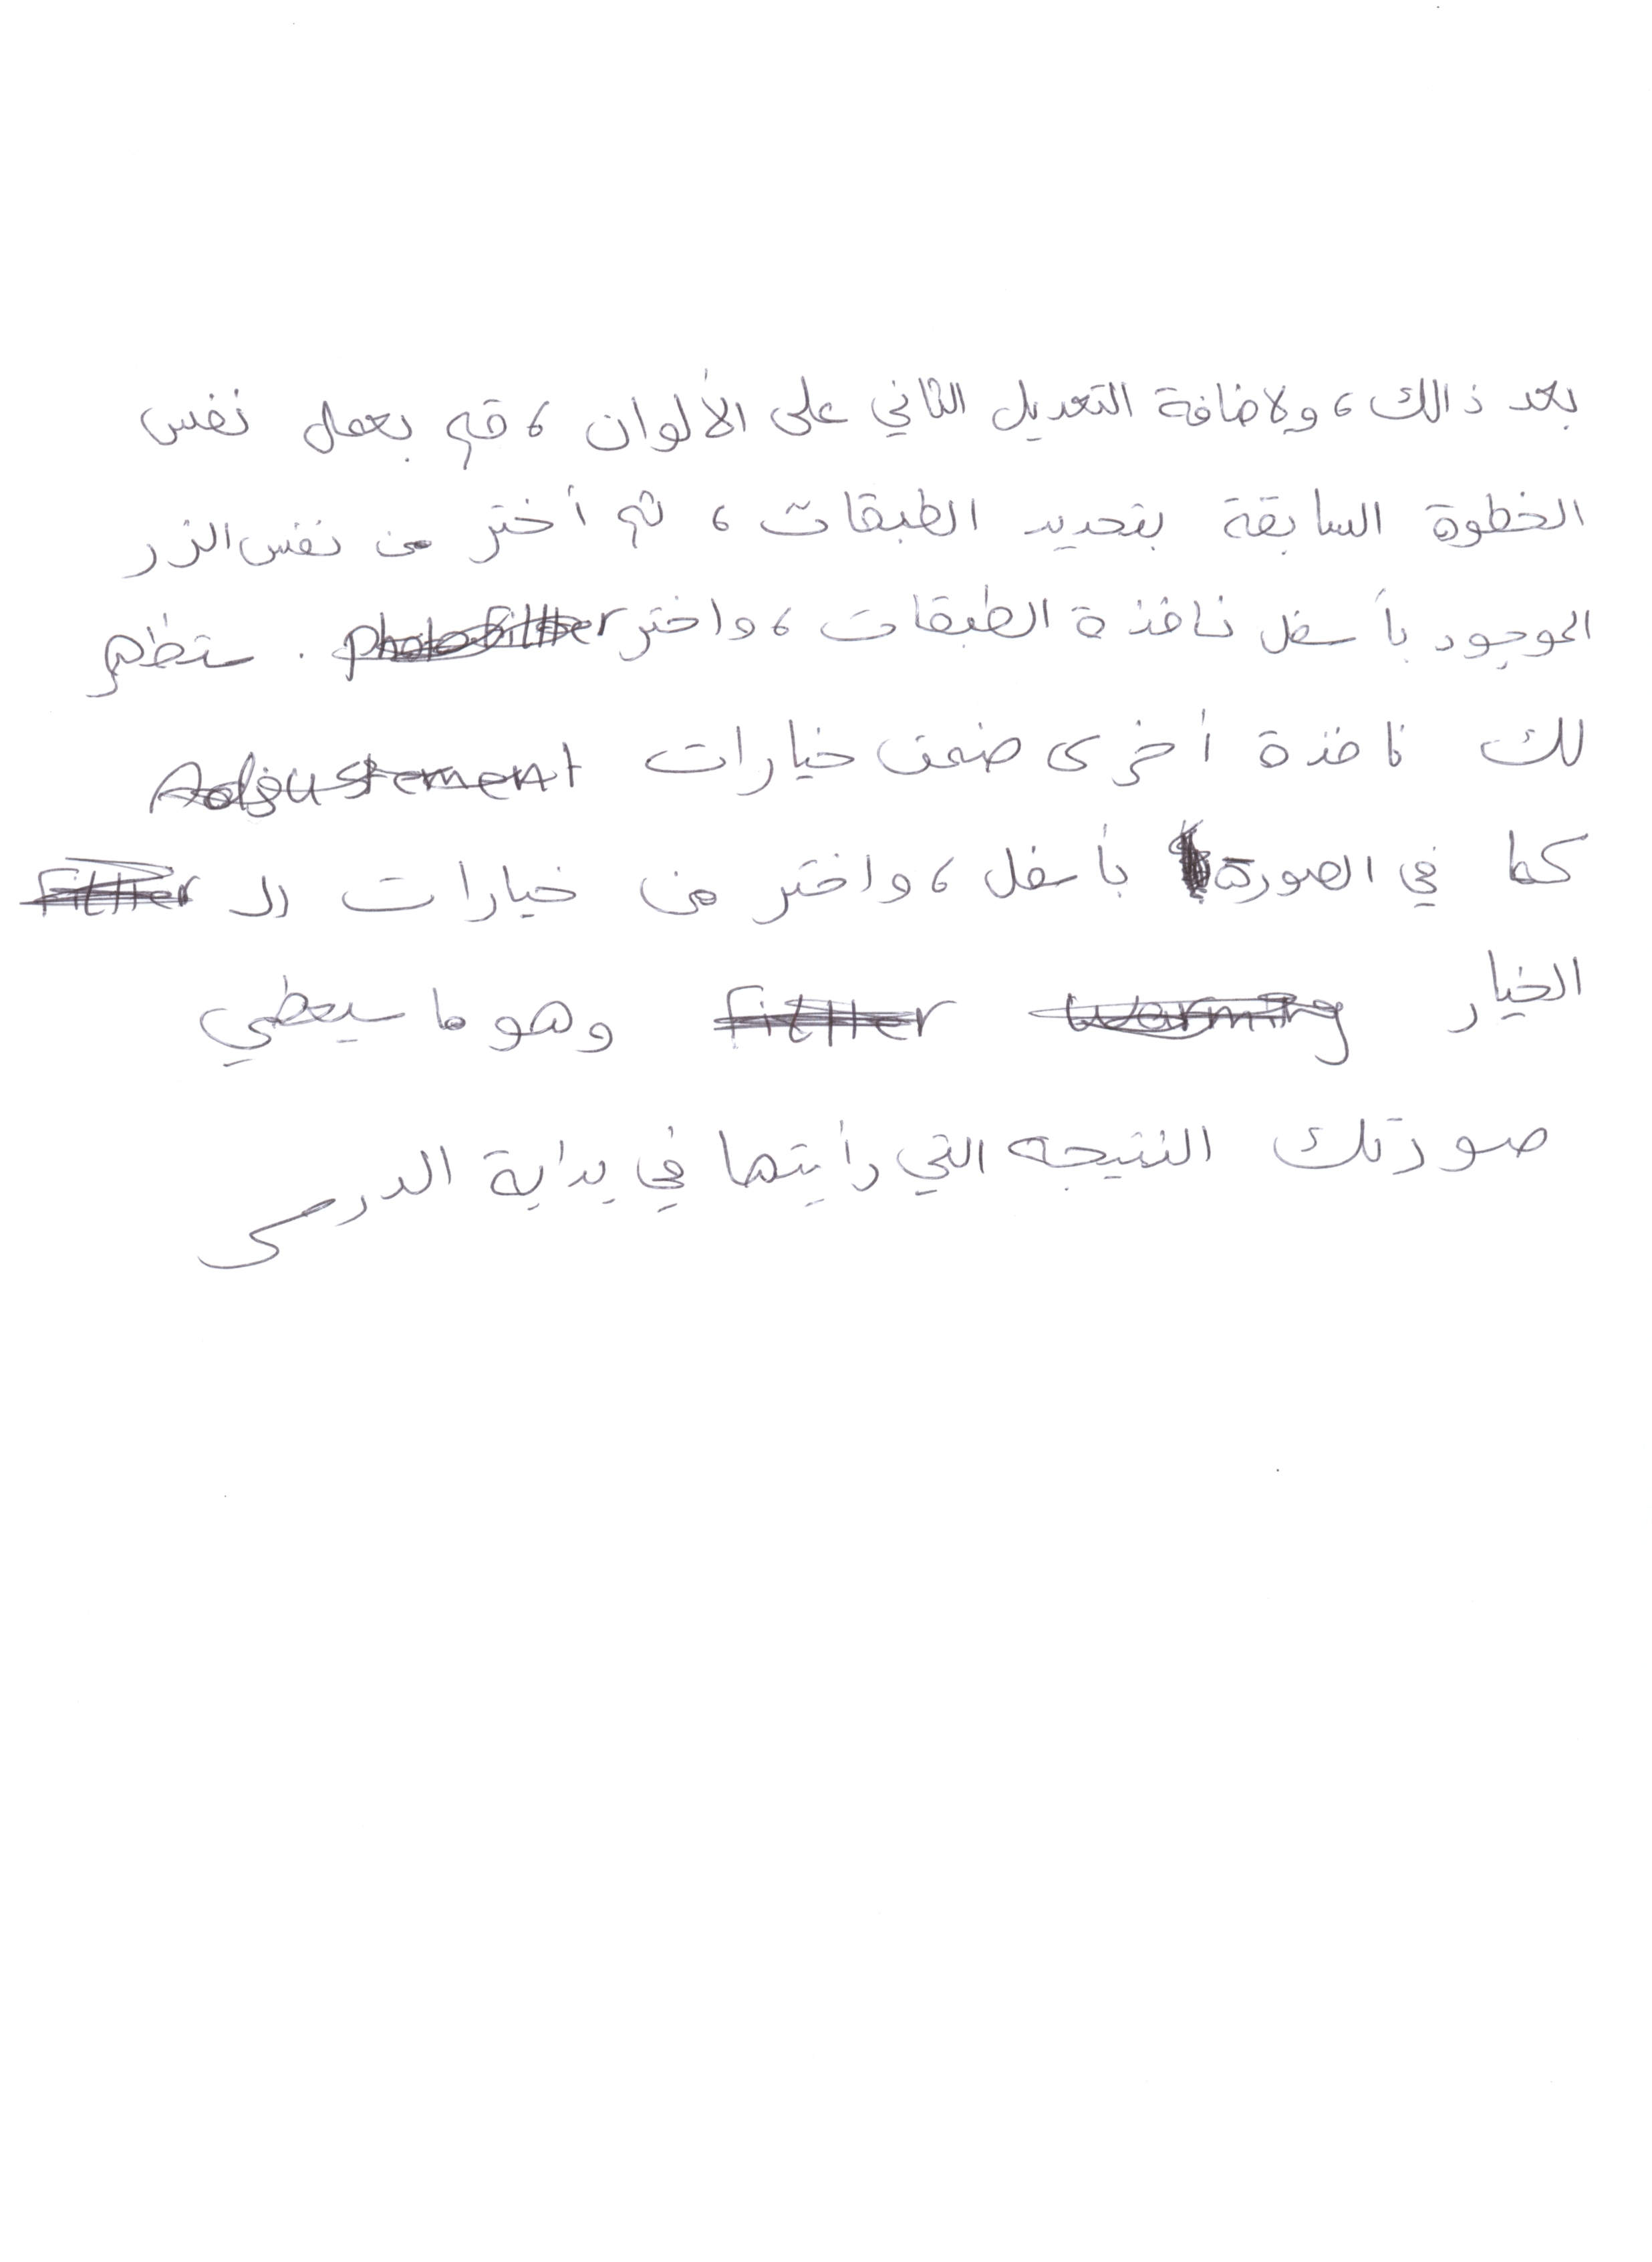 بعد ذالك، ولاضافة التعديل الثاني على الألوان، قم بعمل نفس
الخطوة السابقة بتحديد الطبقات، ثم أختر من نفس الزر
الموجود بأسفل نافذة الطبقات، واختر photofillter. ستظهر
لك نافذة أخرى ضمن خيارات Adjustement
كما في الصورة بأسفل، واختر من خيارات ال fillter
الخيار warming fillter وهو ما سيعطي
صورتك النتيجه التي رأيتها في بداية الدرس